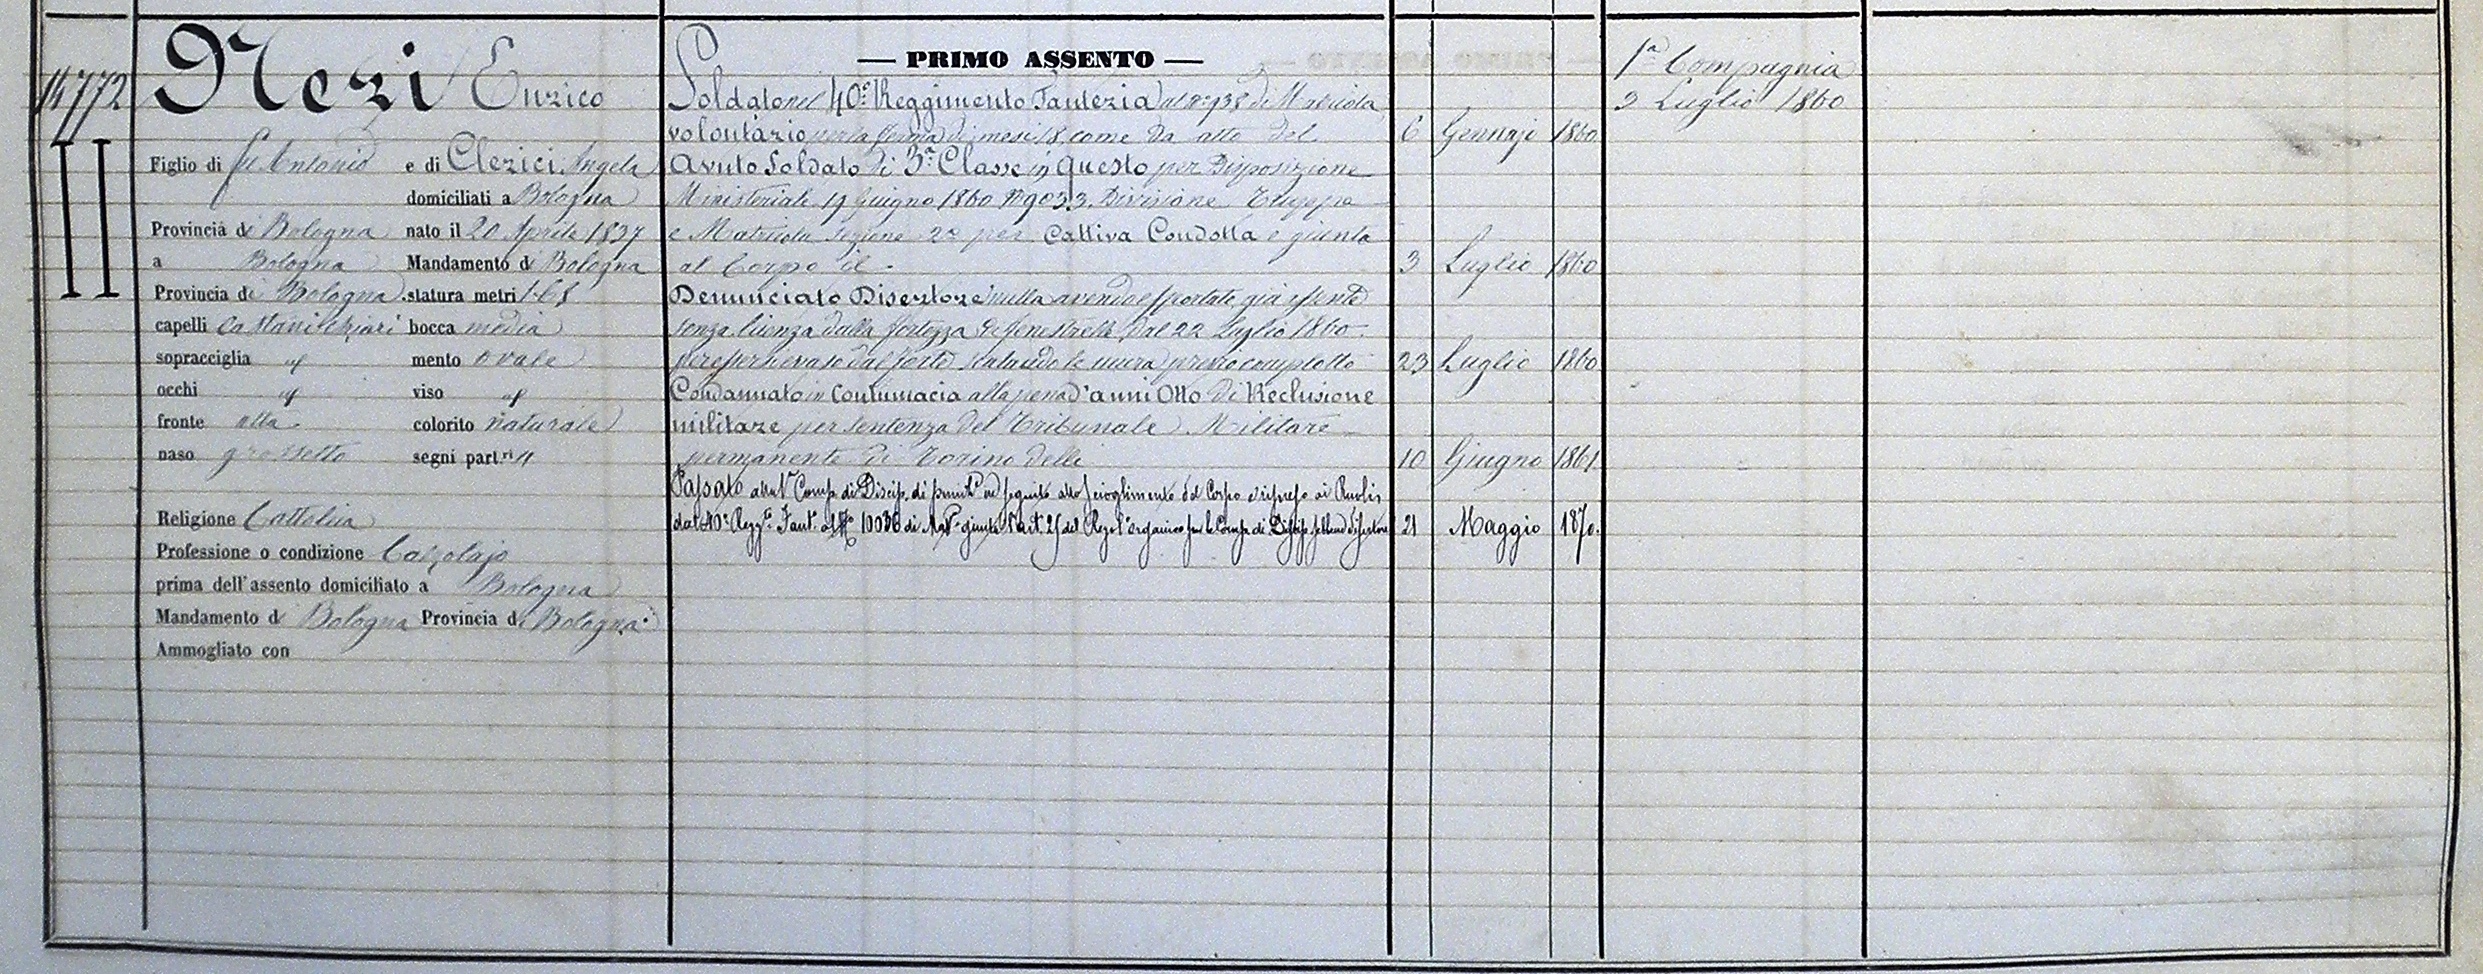 14772
Neri Enrico
Figlio di fu Antonio e di Clerici Angela
domiciliati a Bologna
Provincia di Bologna nato il 20 Aprile 1837
a Bologna Mandamento di Bologna
Provincia di Bologna statura metri 1.68
capelli castani chiari bocca media
sopracciglia id mento ovale
occhi id viso id
fronte alta colorito naturale
naso grossetto segni part.ri //
Religione Cattolica
Professione o condizione Calzolajo
prima dell'assento domiciliato a Bologna
Mandamento di Bologna Provincia di Bologna
Ammogliato con
— PRIMO ASSENTO —
Soldato nel 40.° Reggimento Fanteria al N° 938 di Matricola
volontario per la ferma di mesi 18, come da atto del 6 Gennajo 1860
Avuto Soldato di 3.a Classe in questo per Disposizione
Ministeriale 19 Giugno 1860 N° 9033. Divisione Truppa
e Matricola Sezione 2a per Cattiva Condotta e giunto
al Corpo il 3 Luglio 1860
Denunciato Disertore nulla avendo esportato, già assente
senza licenza dalla fortezza di Fenestrelle, dal 22 Luglio 1860.
per essersi evaso dal forte scalando le mura previo complotto 23 Luglio 1860
Condannato in Contumacia alla pena d'anni Otto di Reclusione
militare per sentenza del Tribunale Militare
permanente di Torino delli 10 Giugno 1861
Passato alla 1a Comp. di Discip. di punit.e in seguito allo scioglimento del Corpo e ripreso ai Ruoli
dal 40° Regg.to Fant.a al N° 10036 di Mat.a giusta l'art. 25 del Regol.o organico per le Comp. di Discip. sebben disertore 21 Maggio 1870.
1a Compagnia
3 Luglio 1860